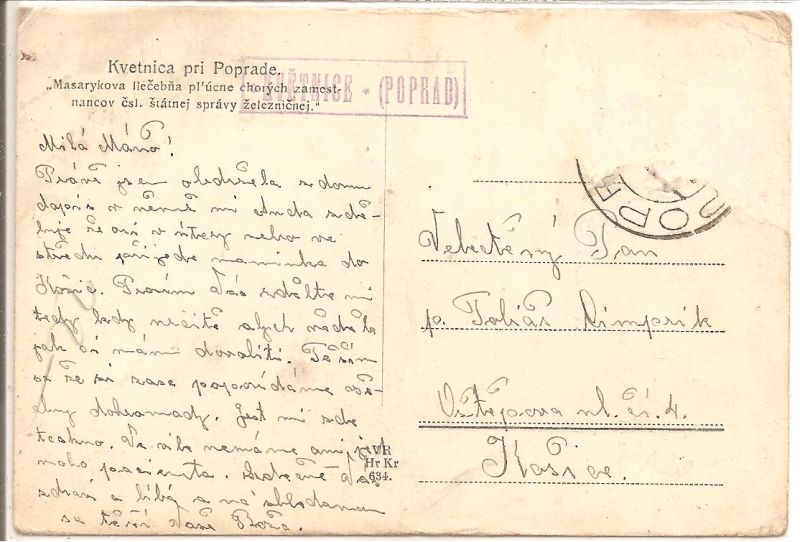 Kvetnica pri Poprade.
„Masarykova liečebňa pľúcne chorých zamest-
nancov čsl. štátnej správy železničnej."
KVĚTNICE * (POPRAD)
Milá Máňo!
Právě jsem obdržela z domu
dopis v němž mi zdě-
luje že asi v úterý nebo ve
středu přijede maminka do
Košic. Prosím Vás sdělte mi
tedy kdy určitě abych věděla
jak si mám
se že si zase popovídáme
dohromady. Jest mi zde
teskno. Ve vile nemáme ani jed
noho pacienta. Srdečně Vás
zdraví a líbá a na shledanou
se těší Vaše Boža.
IVR
Hr Kr
634.
POPR
Velectěný Pan
p. Tobiáš Cimprik
ul. čís. 4.
Košice.